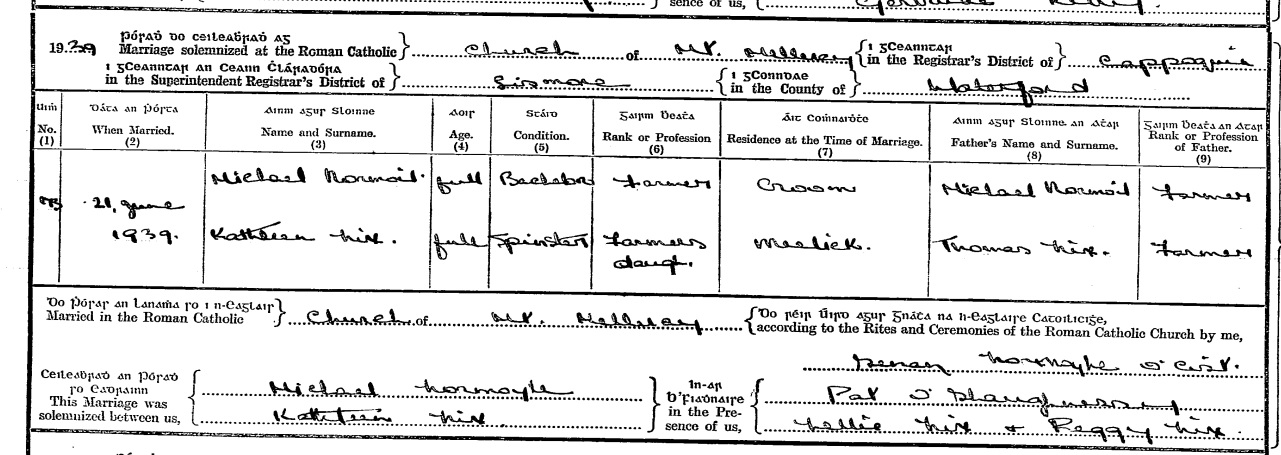 sence of us,
Pórad do ceileabrad ag
1939 Marriage solemnized at the Roman Catholic Church of Mt. Melleray
i gCeanntar
in the Registrar's District of Cappoquin
i gCeanntar an Ceann Cláradóra
in the Superintendent Registrar's District of Lismore
i gConndae
in the County of Waterford
Uimh Dáta an Pórta Ainm agus Sloinne Aois Stáid Gairm Beata Áit Comnaidte Ainm agus Sloinne an Atar Gairm Beata an Atar
No. When Married. Name and Surname. Age. Condition. Rank or Profession Residence at the Time of Marriage. Father's Name and Surname. Rank or Profession of Father.
(1) (2) (3) (4) (5) (6) (7) (8) (9)
Michael Normoil. full Bachelor Farmer Croom Michael Normoil Farmer
21, June
1939. Kathleen Nix. full Spinster Farmers Meelick. Thomas Nix. Farmer
daugh.
Do Pórad an Lanama so i n-Eaglais
Married in the Roman Catholic Church of Mt. Melleray
Do réir Uird agus Gnáta na n-Eaglaise Catoilicige,
according to the Rites and Ceremonies of the Roman Catholic Church by me,
Normoyle O'Cist.
Ceileabrad an Pórad
so eadrainn
This Marriage was
solemnized between us,
Michael Normoyle
Kathleen Nix
In-ar
b'Fiadnaire
in the Pre-
sence of us,
Pat O'Shaughnessy
Nellie Nix & Peggy Nix.